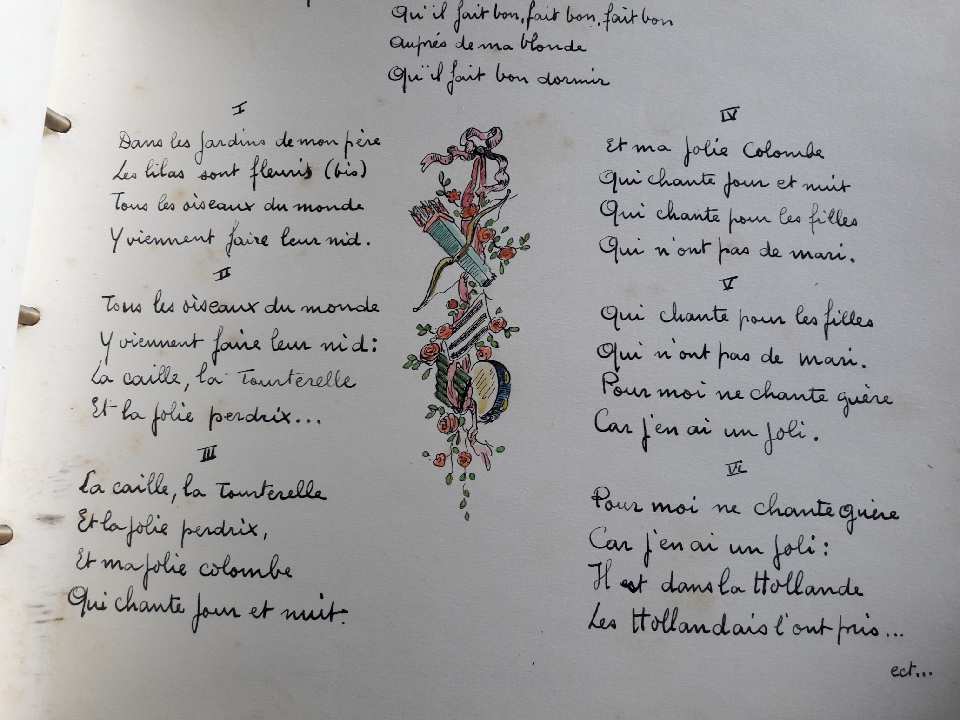 Qu'il fait bon, fait bon, fait bon
Auprés de ma blonde
Qu'il fait bon dormir
I
Dans les jardins de mon père
Les lilas sont fleuris (bis)
Tous les oiseaux du monde
Y viennent faire leur nid.
II
Tous les oiseaux du monde
Y viennent faire leur nid:
La caille, la Tourterelle
Et la jolie perdrix...
III
La caille, la Tourterelle
Et la jolie perdrix,
Et ma jolie colombe
Qui chante jour et nuit.
IV
Et ma jolie Colombe
Qui chante jour et nuit
Qui chante pour les filles
Qui n'ont pas de mari.
V
Qui chante pour les filles
Qui n'ont pas de mari.
Pour moi ne chante guère
Car j'en ai un joli.
VI
Pour moi ne chante guère
Car j'en ai un joli:
Il est dans la Hollande
Les Hollandais l'ont pris...
ect...